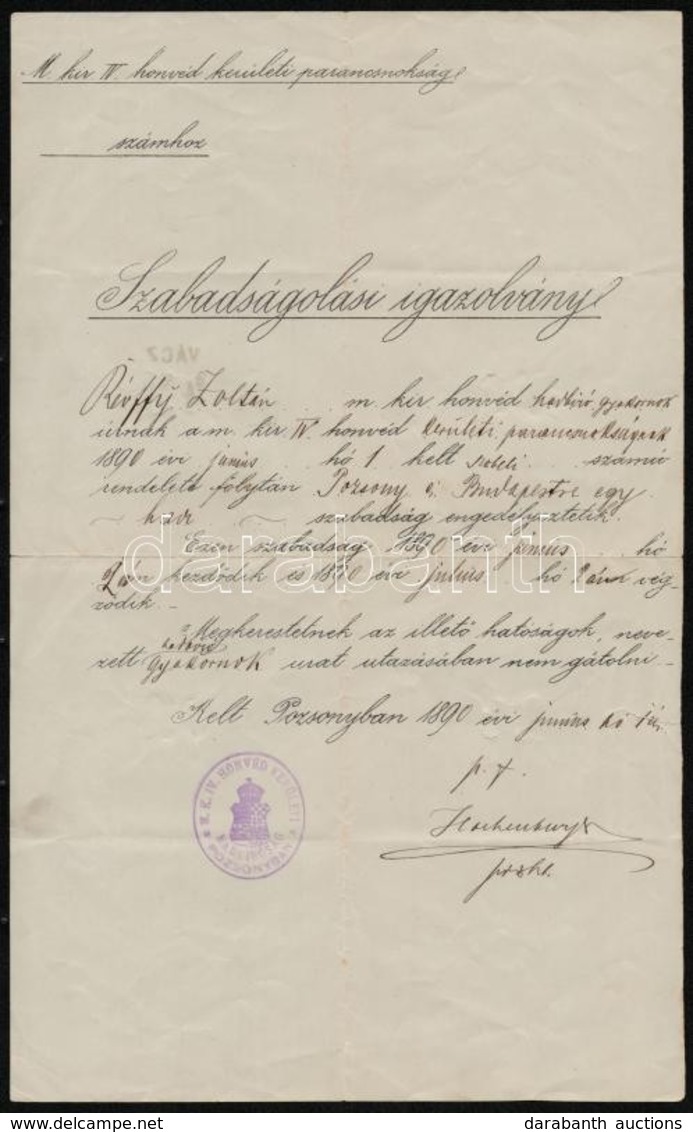 M. kir. IV. honvéd kerületi parancsnokság
számhoz
Szabadságolási igazolvány
VÁCZ
Révffy Zoltán m. kir. honvéd hadbíró gyakornok
úrnak a m. kir. IV. honvéd kerületi parancsnokságnak
1890 évi június hó 1 kelt számú
rendelete folytán Pozsony és Budapestre egy
havi szabadság engedélyeztetik.
Ezen szabadság 1890 évi június hó
2án kezdődik és 1890 évi július hó 2án vég-
ződik.
Megkerestetnek az illető hatóságok, neve-
zett hadbíró
gyakornok urat utazásában nem gátolni.
Kelt Pozsonyban 1890 évi június hó
p. t.
M. K. IV. HONVÉD KERÜLETI
POZSONYBAN
darabanth
darabanth
www.darabanth.com
darabanth auctions